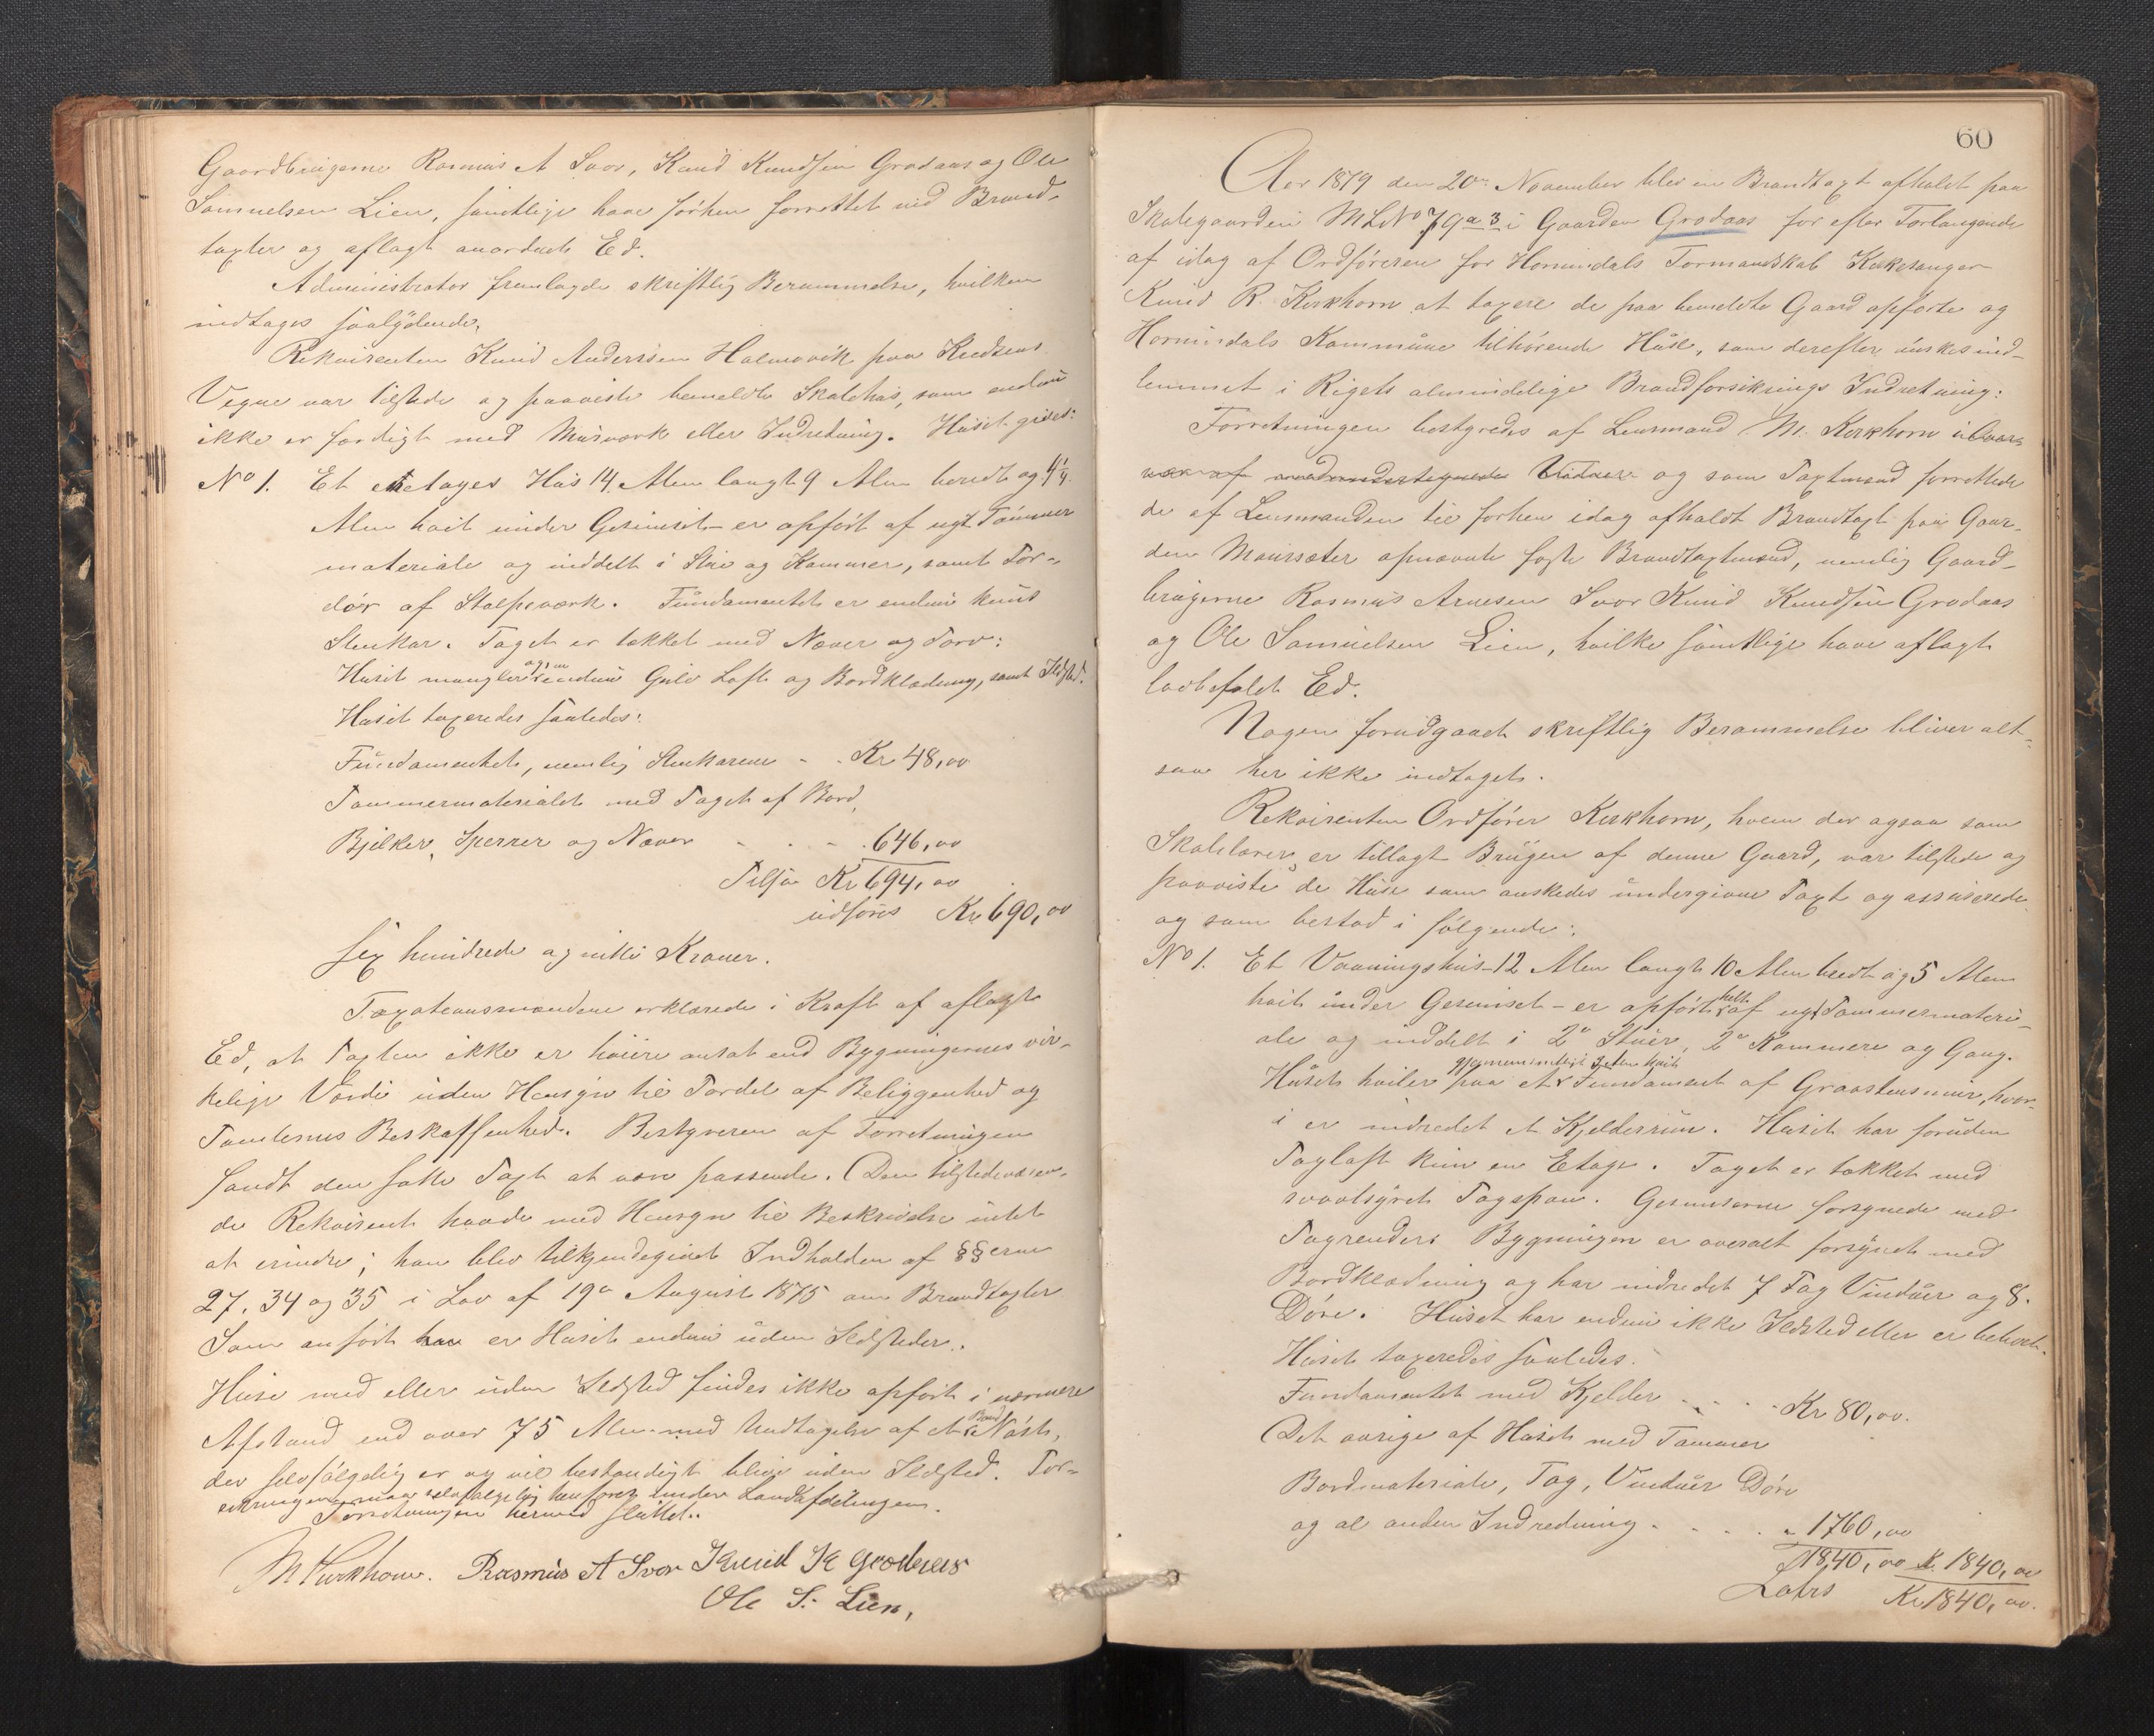 Gaardbrugerne Rasmus A Svor, Knud Knudsen Grodaas og Ole
Samuelsen Lien, samtlige have før her forrettet ved Brand-
taxter og aflagt anordnet Ed.
Administrator fremlagde skriftlig Berammelse, hvilken
indtages saalydende.
Rekvirenten Knud Anderssen Holmøvik paa Kredsens
Vegne var tilstede og paaviste bemeldte Skolehus, som endnu
ikke er færdigt med Murværk eller Indredning. Huset gives:
No 1. Et etetages Hus 14 Alen langt 9 Alen bredt og 4 1/4
Alen høit under Gesimset - er opført af nyt Tømmer
materiale og inddelt i Stue og Kammer, samt For-
dør af Stolpeværk. Fundamentet er endnu kuns
Stenkar. Taget er tækket med Næver og Torv.
Huset mangler ogsaa endnu Gulv Loft og Bordklædning, samt Ildsted.
Huset taxeredes saaledes:
Fundamentet, nemlig Stenkarene - - Kr 48,00
Tømmermaterialet med Taget af Bord,
Bjelker, Sperrer og Næver - - - - 646,00
Tilsa. Kr 694,00
udføres Kr 690,00
Sex hundrede og nitti Kroner.
Taxationsmændene erklærede i Kraft af aflagt
Ed, at Taxten ikke er høiere ansat end Bygningernes vir-
kelige Værdi uden Hensyn til Fordel af Beliggenhed og
Tomternes Beskaffenhed. Bestyreren af Forretningen
fandt den satte Taxt at være passende. Den tilstedeværen-
de Rekvirent havde med Hensyn til Beskrivelse intet
at erindre; han blev tilkjendegivet Indholdet af §§erne
27. 34 og 35 i Lov af 19de August 1875 om Brandtaxter
Som anført har er Huset endnu uden Ildsteder.
Huse med eller uden Ildsted findes ikke opført i nærmere
Afstand end over 75 Alen med Undtagelse af et Baad Nøst,
der selvfølgelig er og vil bestandigt blive uden Ildsted. For-
sikringen maa selvfølgelig henføres under Landafdelingen.
Forretningen hermed sluttet.
M Kirkhorn. Rasmus A Svor Knud K Grodaas
Ole S. Lien,
60
Aar 1879 den 20de November blev en Brandtaxt afholdt paa
Skolegaarden ML No 79 a 3 i Gaarden Grodaas for efter Forlangende
af idag af Ordføreren for Hornindals Formandskab Kirkesanger
Knud R. Kirkhorn at taxere de paa bemeldte Gaard opførte og
Hornindals Kommune tilhørende Huse, som derefter ønskes ind-
lemmet i Rigets almindelige Brandforsikrings Indretning:
Forretningen bestyredes af Lensmand M. Kirkhorn i Over-
vær af medundertegnede Vidner og som Taxtmænd forrettede
de af Lensmanden til forhen idag afholdt Brandtaxt paa Gaar-
den Maurseter opnævnte faste Brandtaxtmænd, nemlig Gaard-
brugerne Rasmus Arnesen Svor Knud Knudsen Grodaas
og Ole Samuelsen Lien, hvilke samtlige have aflagt
lovbefalet Ed.
Nogen forudgaaet skriftlig Berammelse bliver alt-
saa her ikke indtaget.
Rekvirenten Ordfører Kirkhorn, hvem der ogsaa som
Skolelærer er tillagt Brugen af denne Gaard, var tilstede og
paaviste de Huse som ønskedes undergivne Taxt og assurerede
og som bestod i følgende:
No 1. Et Vaaningshus 12 Alen langt 10 Alen bredt og 5 Alen
høit under Gesimset - er opført helt af nyt Tømmermateri-
ale og inddelt i 2de Stuer, 2de Kammere og Gang.
Huset hviler paa et gjennemsnitlig 2 Alen høit Fundament af Graastensmur, hvor-
i er indredet et Kjelderrum. Huset har foruden
Tagloft kun en Etage. Taget er tækket med
svovlsyret Tagspon. Gesimserne forsynede med
Tagrender. Bygningen er overalt forsynet med
Bordklædning og har indredet 7 Fag Vinduer og 8
Døre. Huset har endnu ikke Ildsted eller er beboet.
Huset taxeredes saaledes:
Fundamentet med Kjelder - - - - Kr 80,00.
Det øvrige af Huset med Tømmer
Bordmateriale, Tag, Vinduer Døre
og al anden Indredning - - - - " 1760,00
1840,00 Kr. 1840,00
Latrs Kr 1840,00.